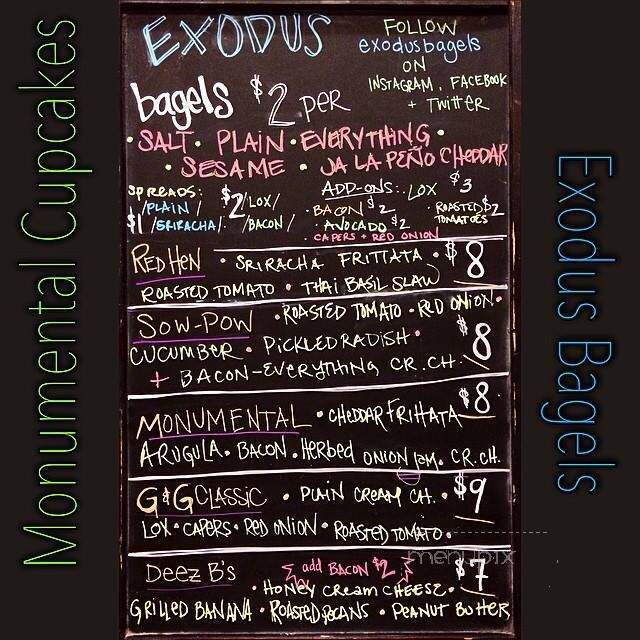 Monumental Cupcakes
EXODUS
FOLLOW
exodusbagels
ON
INSTAGRAM, FACEBOOK
+ TWITTER
bagels $2 PER
• SALT • PLAIN • EVERYTHING •
• SESAME • JA LA PEÑO CHEDDAR
SPREADS:
$1 /PLAIN/ /SRIRACHA/
$2 /LOX/ /BACON/
ADD-ONS: LOX $3
• BACON $2 ROASTED $2
• AVOCADO $2 TOMATOES
CAPERS + RED ONION
RED HEN • SRIRACHA FRITTATA • $8
ROASTED TOMATO • THAI BASIL SLAW
SOW-POW • ROASTED TOMATO • RED ONION •
CUCUMBER • PICKLED RADISH • $8
+ BACON-EVERYTHING CR. CH.
MONUMENTAL • CHEDDAR FRITTATA $8
ARUGULA • BACON • HERBED ONION JAM • CR. CH.
G&G CLASSIC • PLAIN CREAM CH. • $9
LOX • CAPERS • RED ONION • ROASTED TOMATO •
DEEZ B'S {add BACON $2} $7
• HONEY CREAM CHEESE •
GRILLED BANANA • ROASTED PECANS • PEANUT BUTTER
Exodus Bagels
menupix